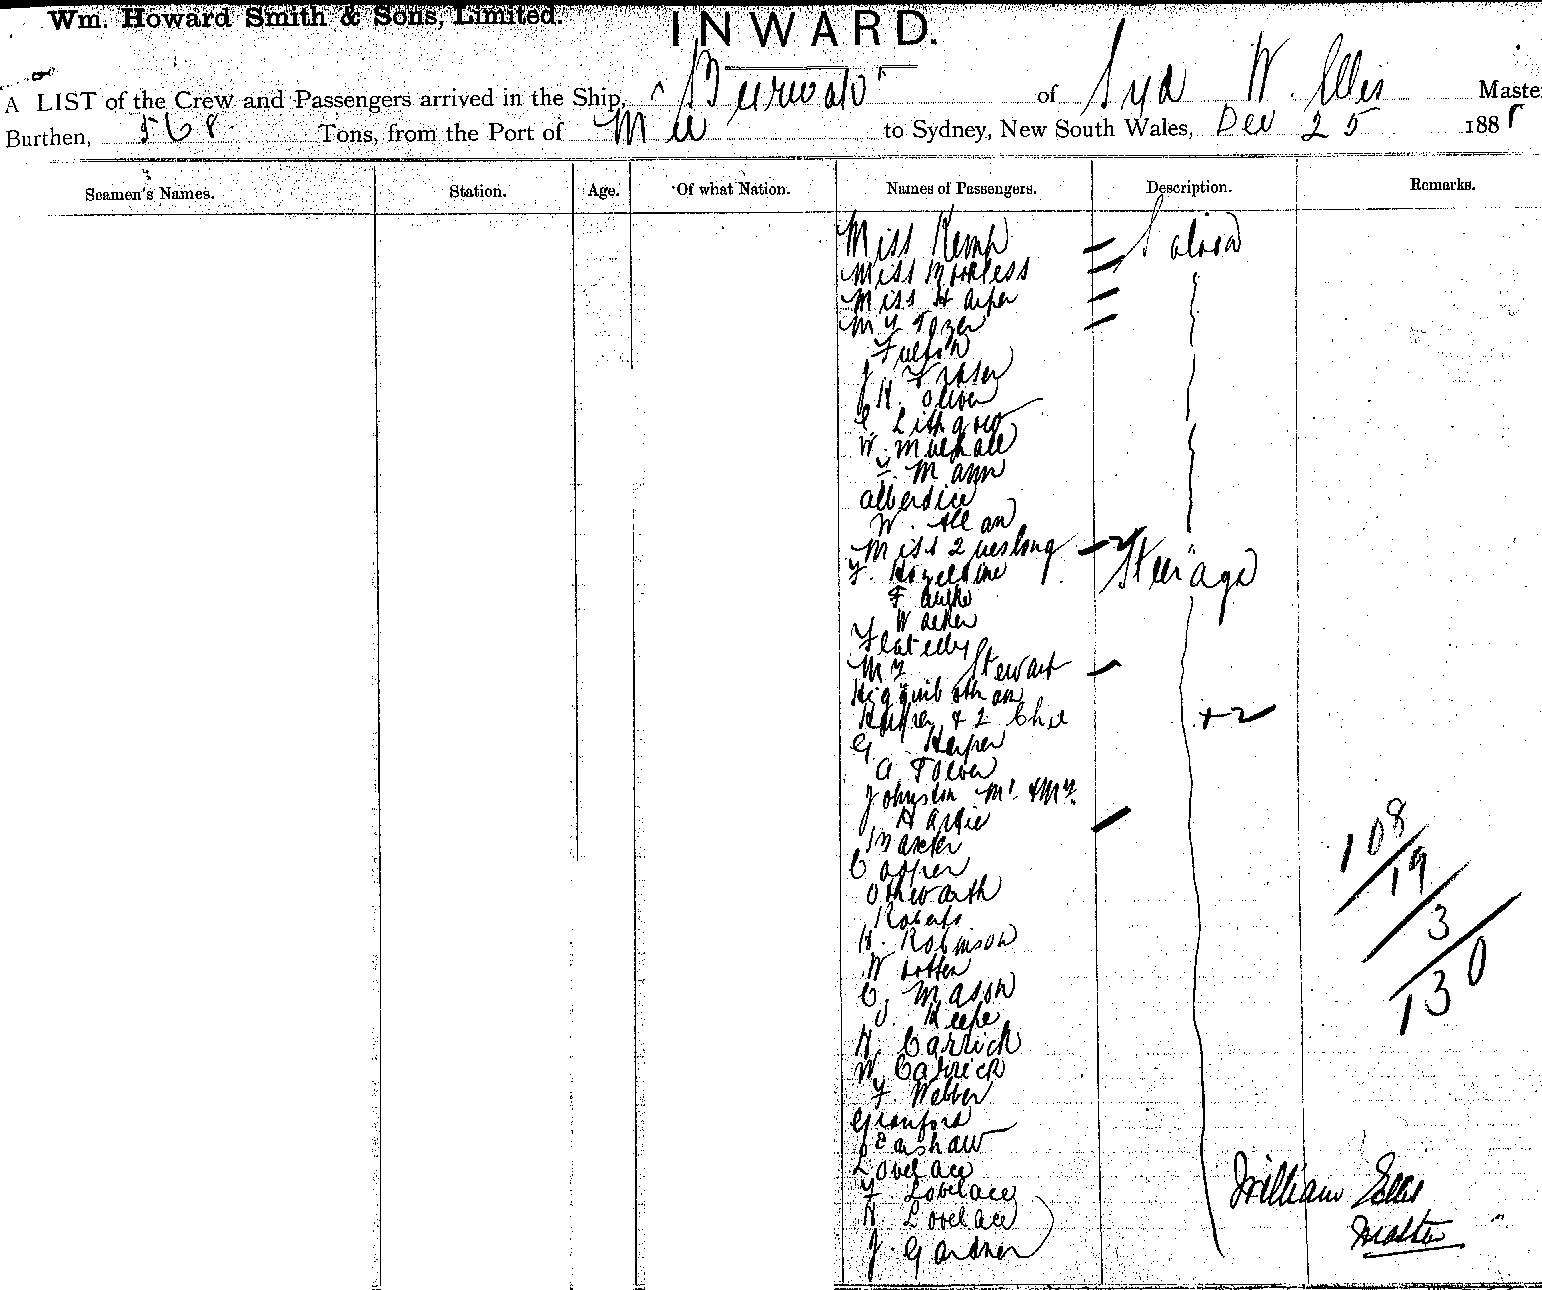 Wm. Howard Smith & Sons, Limited.
INWARD.
A LIST of the Crew and Passengers arrived in the Ship, "Burwah" of Syd W. Ellis Maste
Burthen, 568 Tons, from the Port of to Sydney, New South Wales, Dec 25 1888
Seamen's Names. Station. Age. Of what Nation. Names of Passengers. Description. Remarks.
Miss Kemp Saloon
Miss
Miss Harper
Mrs Tozer
Fulton
J. Fraser
J H. Oliver
C. Lithgow
W. Mulhall
F. Mann
Alberdice
W. Allan
Miss
F. Hazeldine Steerage
Walker
Flatelly
Mrs Stewart
Higginbotham
& 2 Chil + 2
G Harper
A
Johnston Mr. & Mrs.
Hardie
Baxter
108
19
3
130
Roberts
H. Robinson
W
C. Mason
J. Keefe
H. Carrick
W. Carrick
F. Webber
Granford
Earshaw
Lovelace
F Lovelace
H Lovelace
J. Gardner
William Ellis
Master